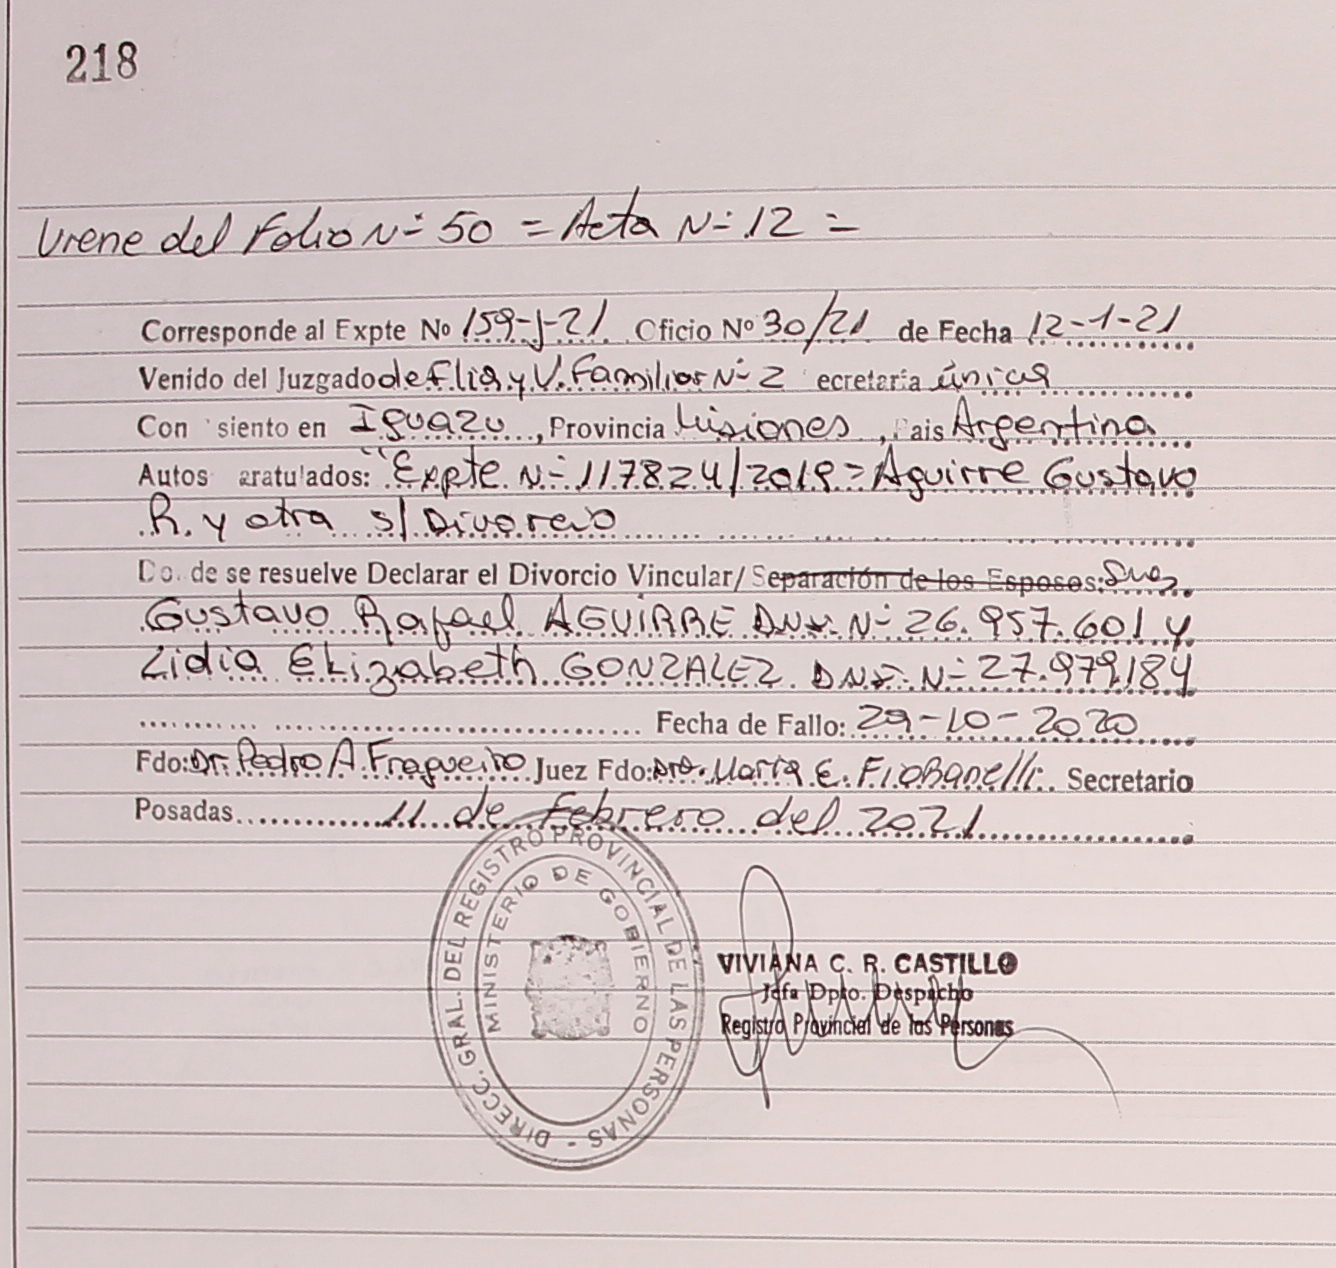 218
Viene del Folio Nº 50 = Acta Nº 12 =
Corresponde al Expte No 159-J-21 Oficio Nº 30/21 de Fecha 12-1-21
Venido del Juzgado de Flia y V. Familiar Nº 2 ecretaría única
Con siento en Iguazu, Provincia Misiones, Pais Argentina
Autos aratulados: "Expte Nº 117824/2019 = Aguirre Gustavo
R. y otra s/ Divorcio
Do. de se resuelve Declarar el Divorcio Vincular/ Separación de los Esposos:
Gustavo Rafael AGUIRRE DNI Nº 26.957.601 y
Lidia Elizabeth GONZALEZ DNI Nº 27.979.184
Fecha de Fallo: 29-10-2020
Fdo: Dr. Pedro A. Fragueiro Juez Fdo: Dra. Maria E. Secretario
Posadas 11 de Febrero del 2021
DIRECC. GRAL. DEL REGISTRO PROVINCIAL DE LAS PERSONAS -
MINISTERIO DE GOBIERNO
VIVIANA C. R. CASTILLO
Jefa Dpto. Despacho
Registro Provincial de las Personas